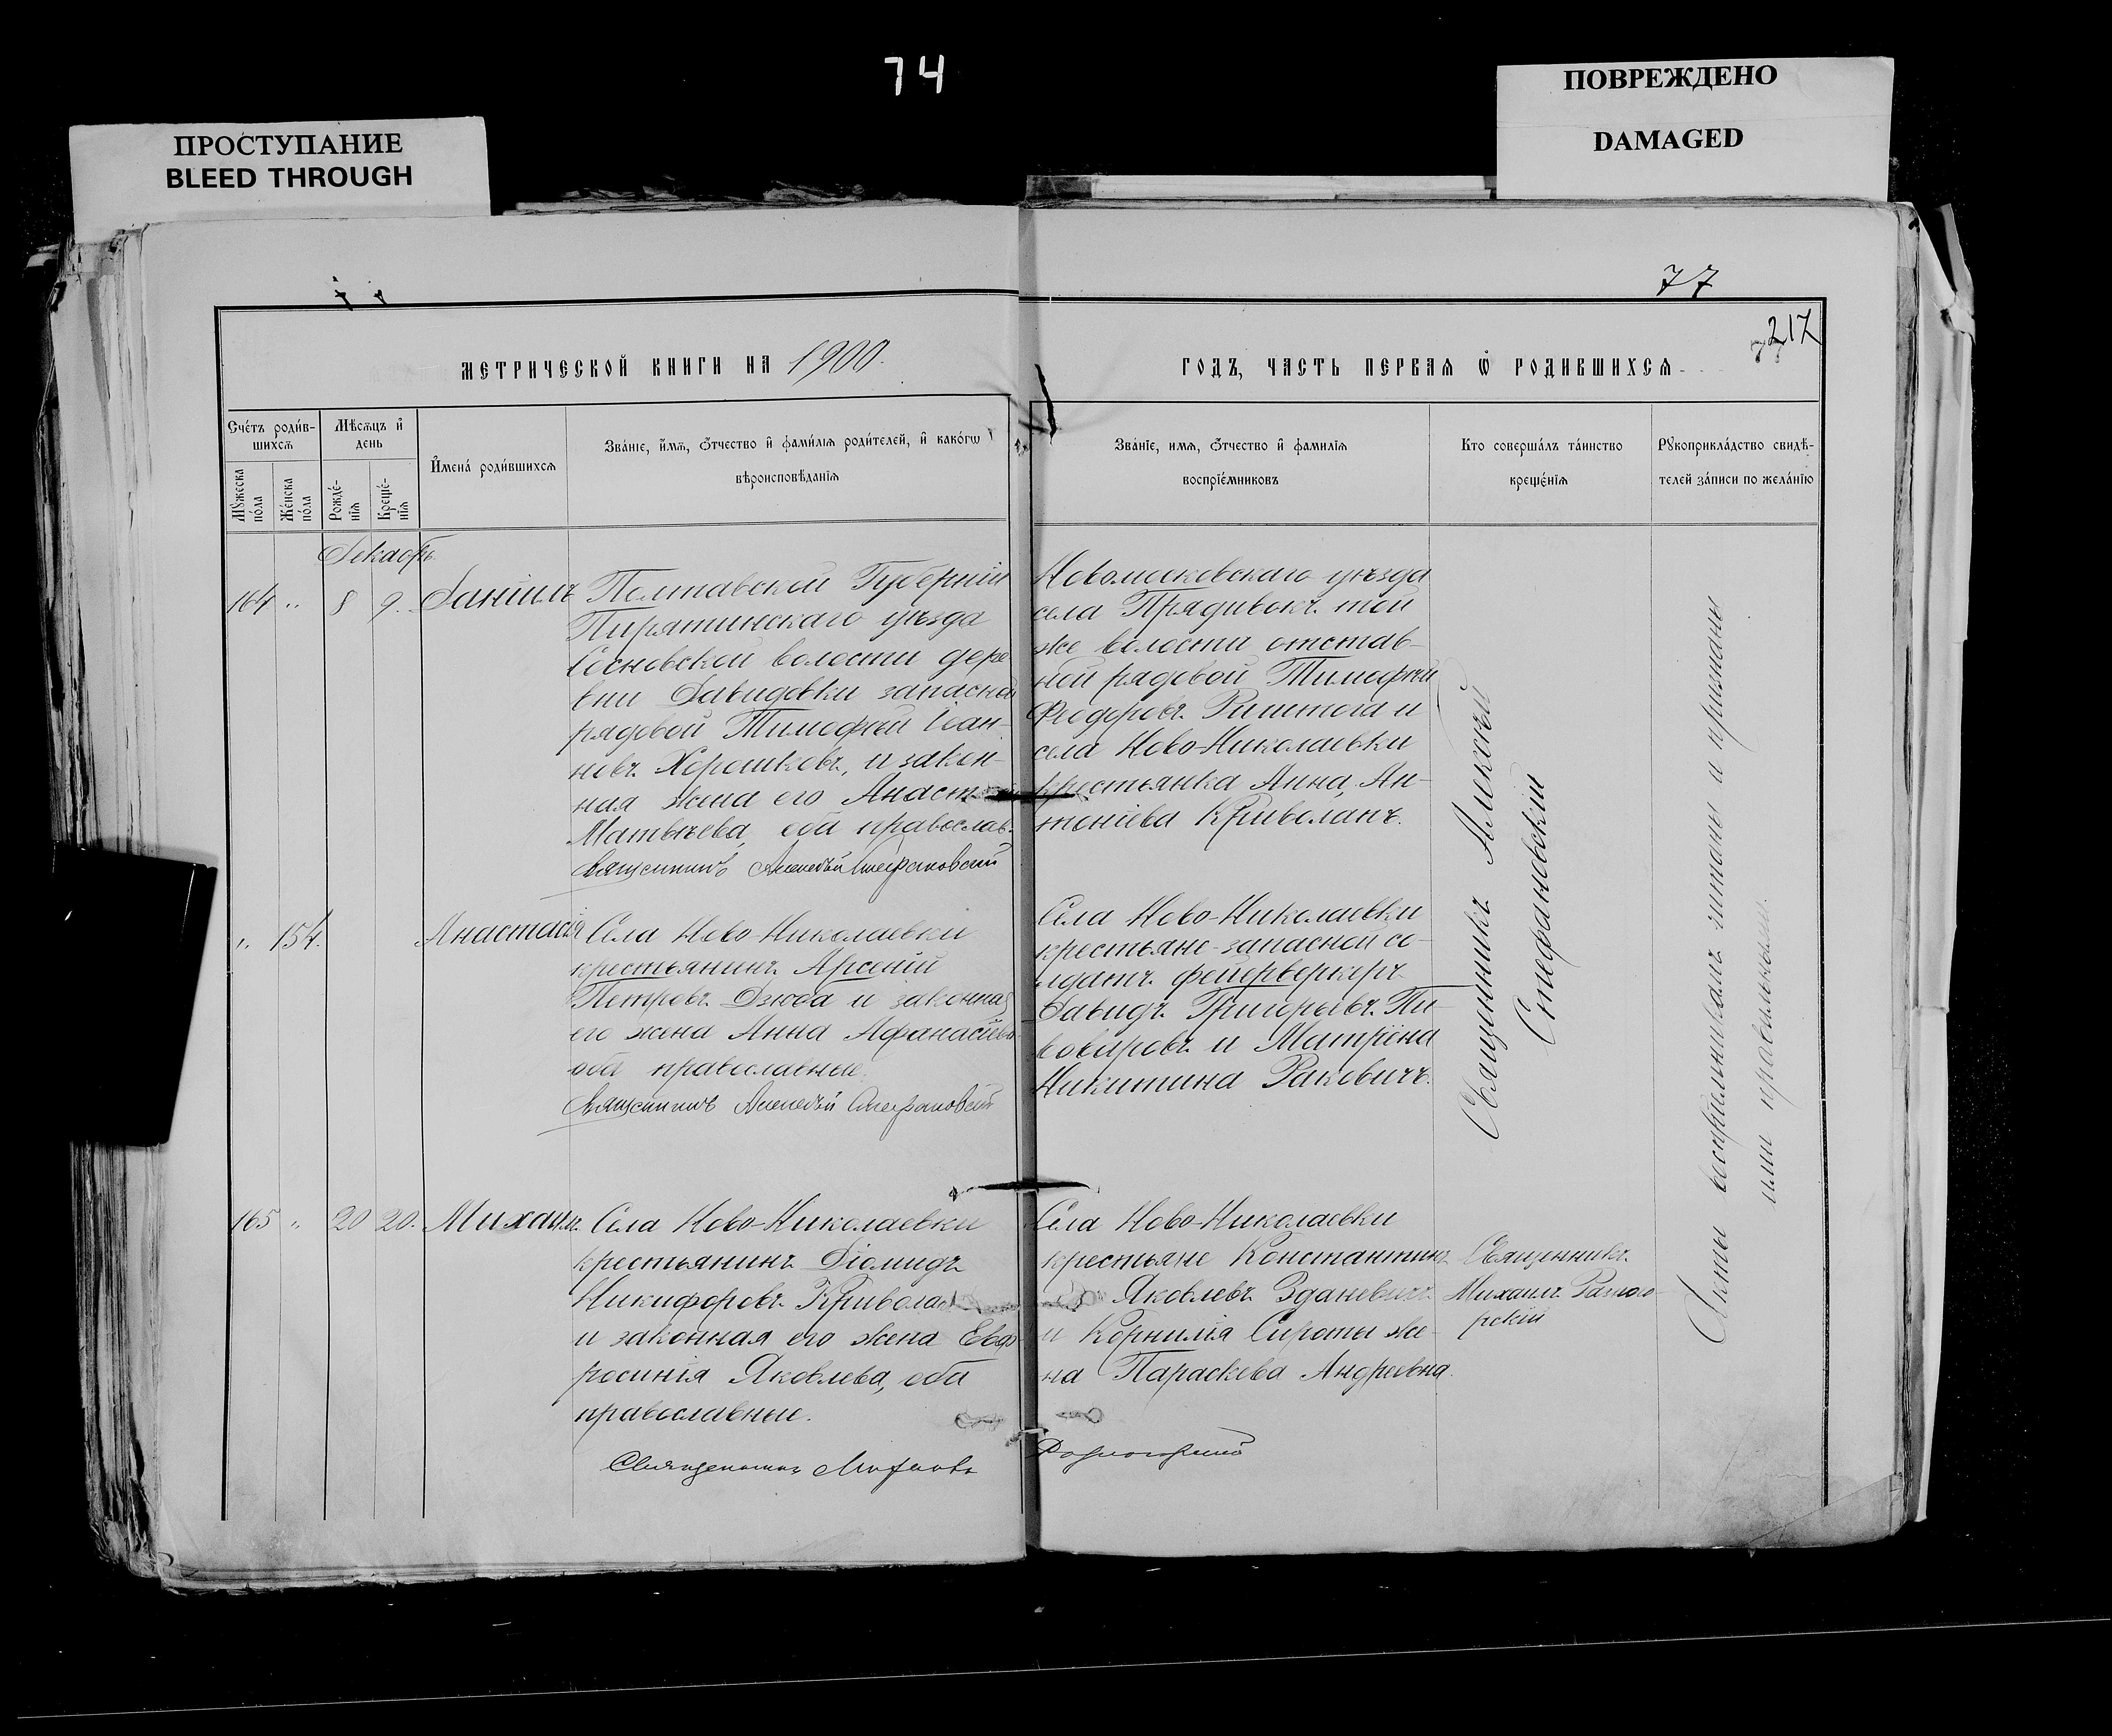 74
ПРОСТУПАНИЕ
BLEED THROUGH
ПОВРЕЖДЕНО
DAMAGED
77
217
МЕТРИЧЕСКОЙ КНИГИ НА 1900.
ГОДЪ, ЧАСТЬ ПЕРВАЯ Ѡ РОДИВШИХСЯ
Счетъ родив-
шихся
Мужеска
пола
Женска
пола
Мѣсяцъ и
день
Рожде-
нія
Креще-
нія
Имена родившихся
Званіе, имя, отчество и фамилія родителей, и какогѡ
вѣроисповѣданія
Званіе, имя, отчество и фамилія
воспріемниковъ
Кто совершалъ таинство
крещенія
Рукоприкладство свидѣ-
телей записи по желанію
Декабрь
164 " 8 9. Даніилъ
Полтавской Губерніи
Пирятинскаго уѣзда
Сосновской волости дере
вни Давидовки запасной
рядовой Тимофей Іоан-
новъ Хорошковъ, и закон-
ная жена его
Матвѣева, оба православ.
Священникъ Алексѣй Стефановскій
Новомосковскаго уѣзда
села Прядивокъ той
же волости отстав-
ной рядовой Тимофей
Феодоровъ и
села Ново-Николаевки
крестьянка Анна Ан-
тоніева Криволапъ.
" 154. Анастасія
Села Ново-Николаевки
крестьянинъ Арсеній
Петровъ Дзюба и законная
его жена Анна Афанасіева
оба православные.
Священникъ Алексѣй Стефановскій
Села Ново-Николаевки
крестьяне-запасной со-
лдатъ фейерверкеръ
Давидъ Григорьевъ Пи-
воваровъ и Матрона
Никитина Раковичъ.
Священникъ Алексѣй
Стефановскій
165 " 20 20. Михаилъ
Села Ново-Николаевки
крестьянинъ Діомидъ
Никифоровъ
и законная его жена Евф-
росинія Яковлева, оба
православные.
Священникъ Михаилъ
Разногорскій
Села Ново-Николаевки
крестьяне Константинъ
Яковлевъ Зданевичъ
и Корнилія Сироты же-
на Параскева Андреевна.
Священникъ
Михаилъ
рскій
Акты воспріемникамъ читаны и признаны
ими правильными.